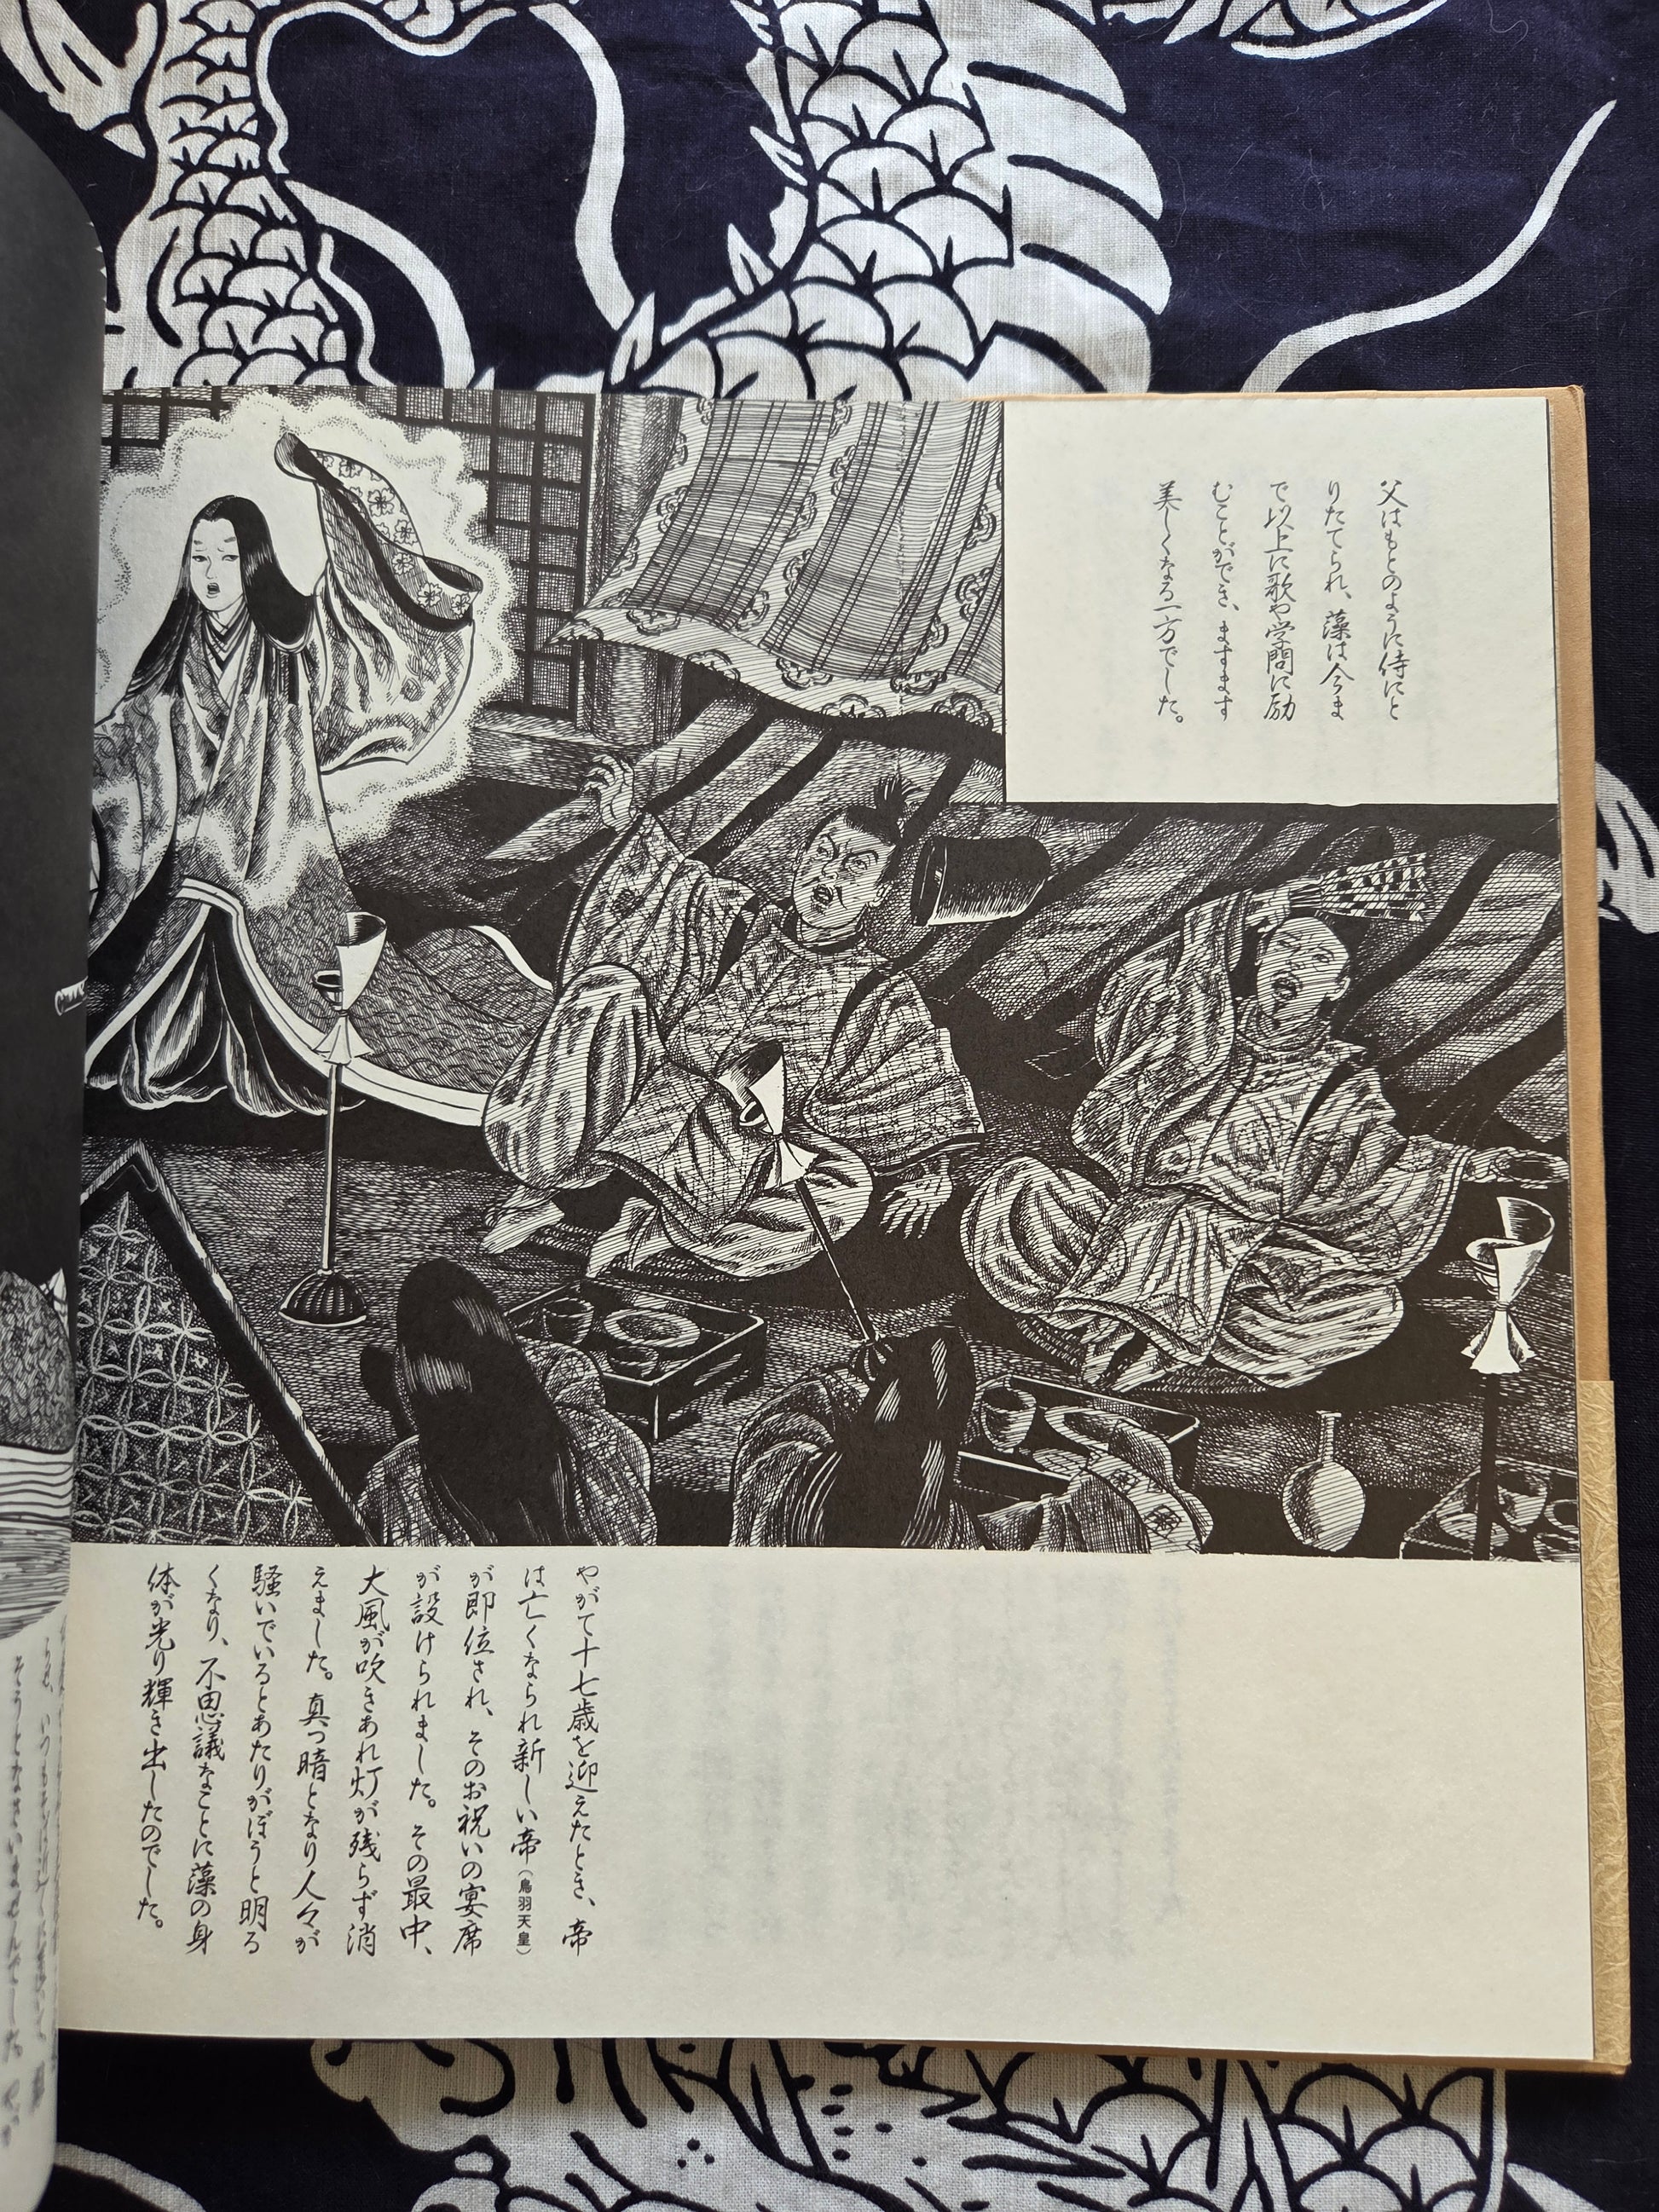 父はもとのように侍にと
りたてられ、藻は今ま
で以上に歌や学問に励
むことができ、ますます
美しくなる一方でした。
やがて十七歳を迎えたとき、帝
は亡くなられ新しい帝(鳥羽天皇)
が即位され、そのお祝いの宴席
が設けられました。その最中、
大風が吹きあれ灯が残らず消
えました。真っ暗となり人々が
騒いでいるとあたりがぼうと明る
くなり、不思議なことに藻の身
体が光り輝き出したのでした。